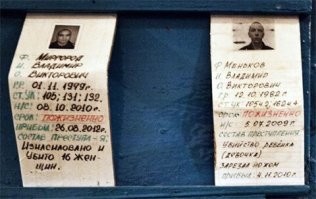 Ф. Миргород
И. Владимир
О. Викторович
Г.Р. 01.11.1979г.
СТ.УК: 105; 131; 132.
Н/С: 08.10.2010г.
СРОК: ПОЖИЗНЕННО
ПРИБЫЛ: 26.08.2012г.
СОСТАВ ПРЕСТУПЛ-Я:
ИЗНАСИЛОВАНО И
УБИТО 16 ЖЕН-
ЩИН.
Ф. Маньков
И. Владимир
О. Викторович
Г.Р. 12.10.1982г
СТ.УК
СРОК: ПОЖИЗНЕННО
Н/С: 5.07.2009г.
СОСТАВ ПРЕСТУПЛЕНИЯ
УБИЙСТВО РЕБЁНКА
(ДЕВОЧКА)
ЗАРЕЗАЛ НОЖОМ
4.11.2010г.